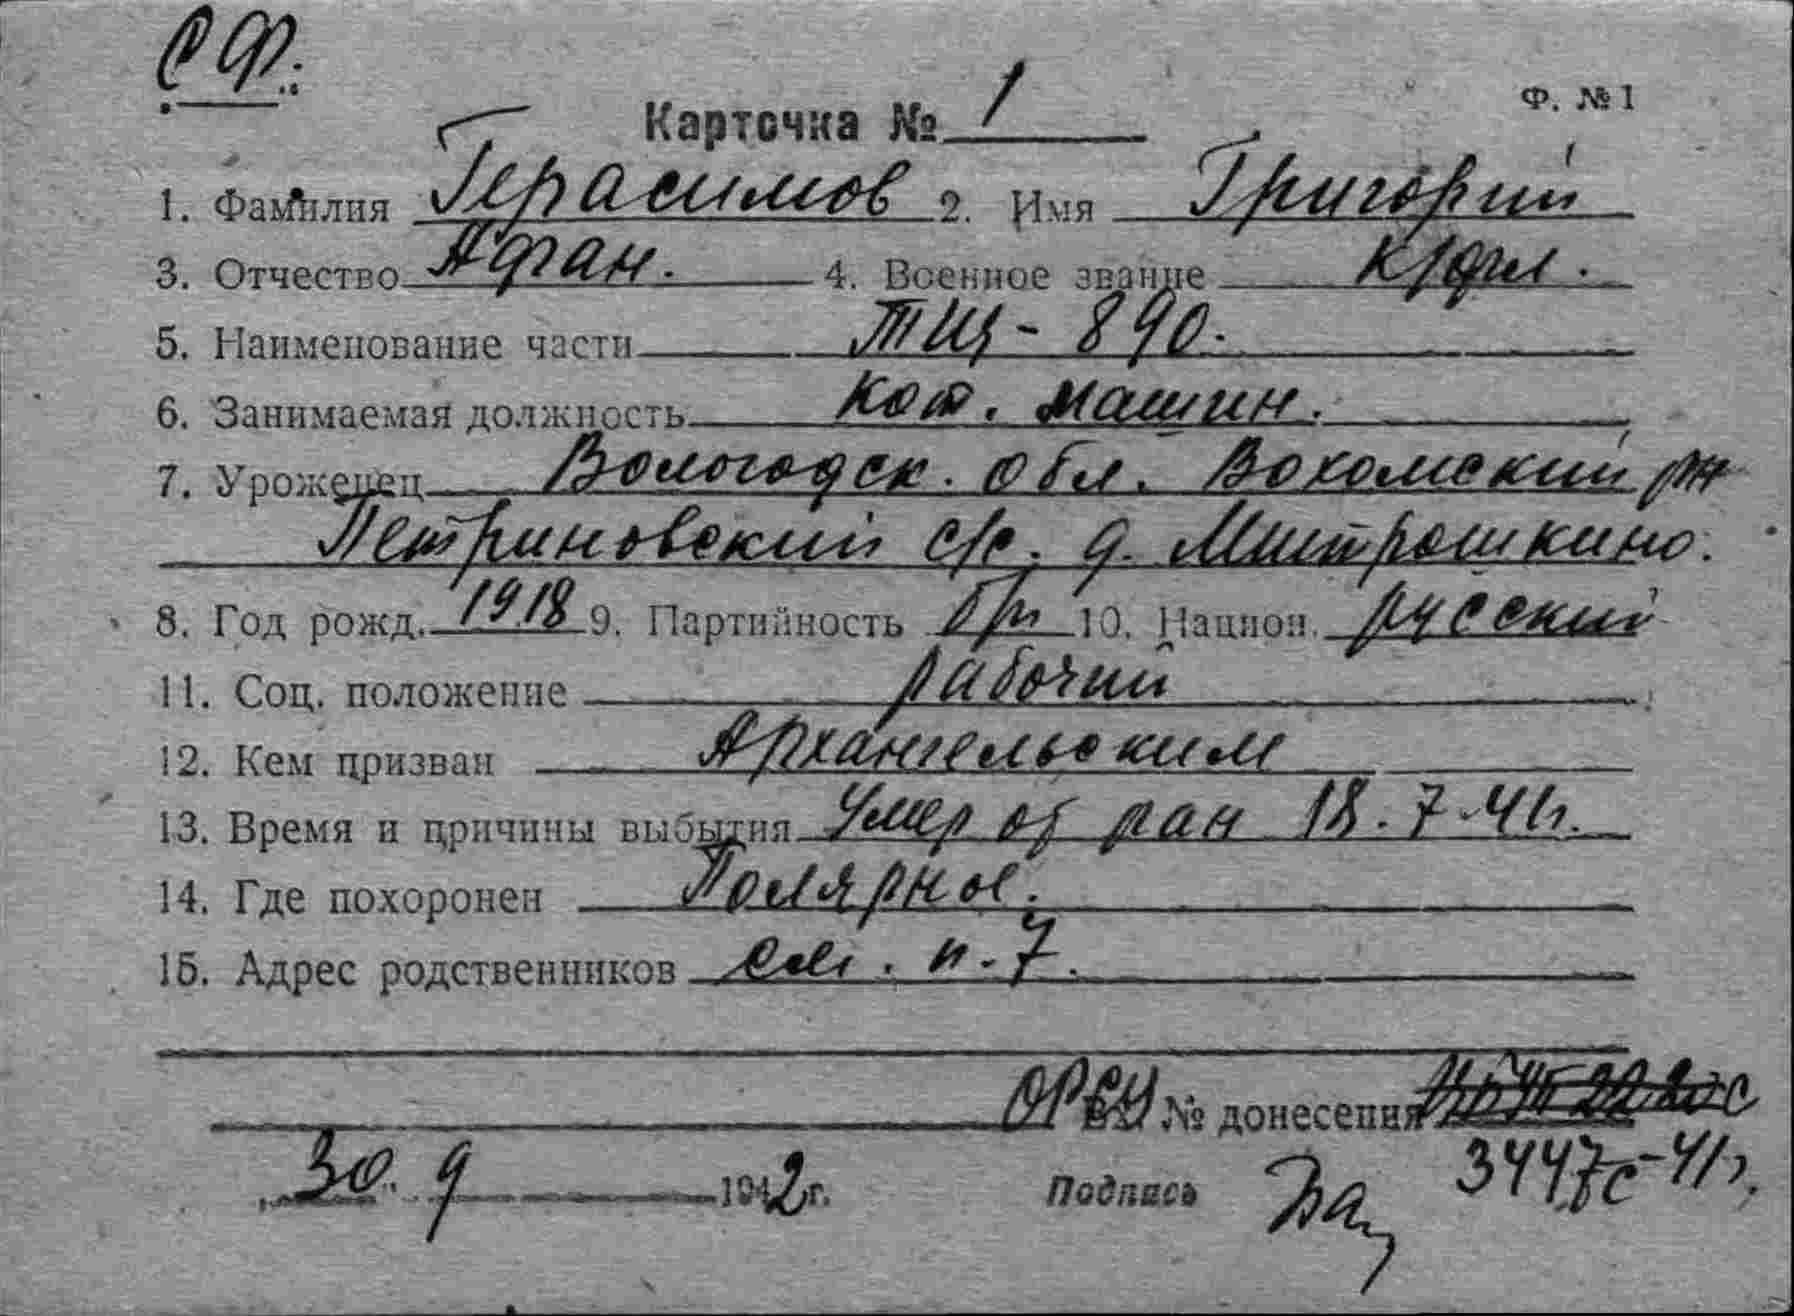 СФ.
Ф. №1
Карточка № 1
1. Фамилия Герасимов 2. Имя Григорий
3. Отчество Афан. 4. Военное звание к/фл.
5. Наименование части ТЩ-890.
6. Занимаемая должность кот. машин.
7. Уроженец Вологодск. обл. Вохомский рн
Петриновский с/с. д. Митрошкино.
8. Год рожд. 1918 9. Партийность б/п 10. Национ. русский
11. Соц. положение рабочий
12. Кем призван Архангельским
13. Время и причины выбытия Умер от ран 18.7.41г.
14. Где похоронен Полярное.
15. Адрес родственников см. п.7.
ОРСУ № донесения
3447с-41г.
30. 9 1942г. Подпись